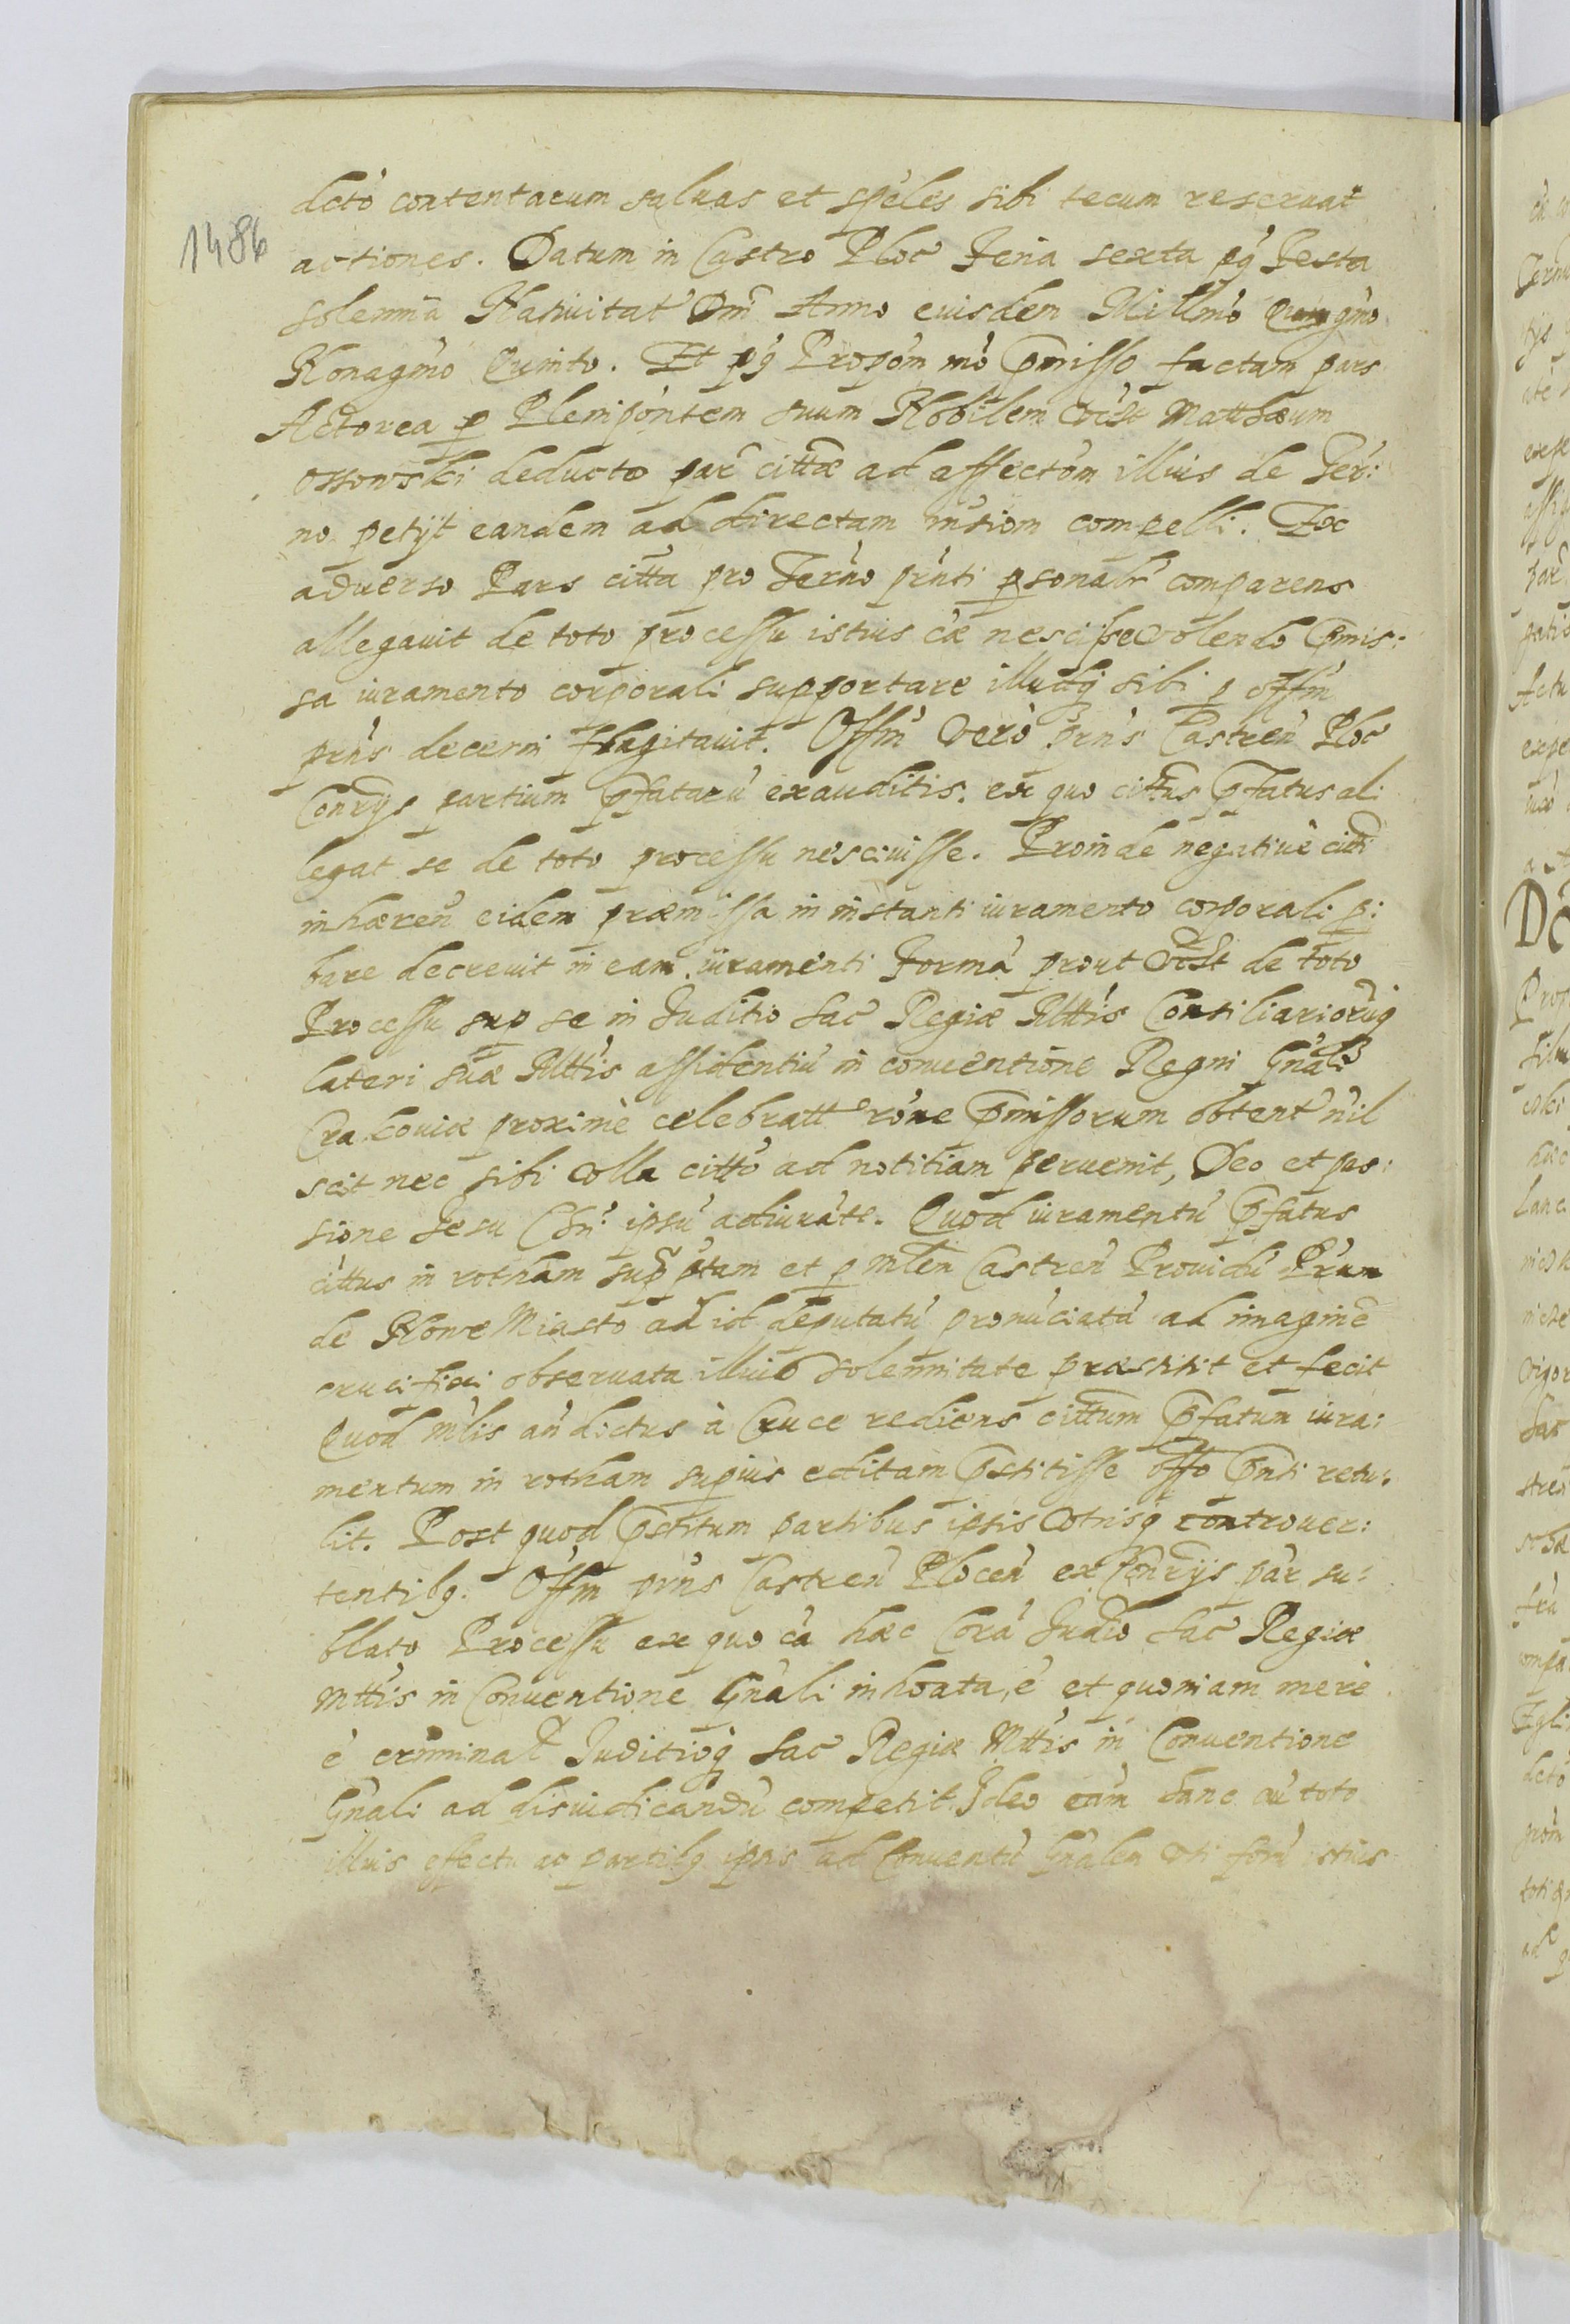 1486
dcto contentarum saluas et speles sibi tecum reseruat
actiones. Datum in Castro Ploc Feria sexta pq Festa
solenma Natiuitat Dni Anno euisdem Millmo Quingmo
Nonagmo Quinto. Et pq Propom mo pmisso factam pars
Actorea p Plenipontem suum Nobilem Matthæum
Ossowski deducto par cittæ ad affectom illius de Ter:
no petyt eandem ad directam msiom compelli. Ex
aduerso Pars citta pro Termo prnti psonalr comparens
allegauit de toto processu istius cæ nescisse volendo pmis:
sa iuramento corporali supportare illudq sibi p Offm
prns decerni flagitauit. Offm vero prns Castren Ploc
Conrys partium pfataru exauditis. ex quo cittus pfatus al:
legat se de toto processu nesciuisse. Proinde negatiuè citti
inhæren eidem præmissa in instanti iuramento corporali p:
bare decreuit in eam iuramenti Formã prout de toto
Processu sup se in Juditio Sac Regiæ Mttis Consiliariorũq
lateri suæ Mttis assidentiũ in conuentione Regni Gnali
Crakouiæ proximè celebratt rone pmissorum obtent nil
scit nec sibi vlla citto ad notitiam peruenit, Deo et pas:
sione Jesu Chri ipsũ adiuuãte. Quod iuramentũ pfatus
cittus in rotham supptam et p mlem Castren Prouidũ
de Nowe Miasto ad id deputatũ pronũciatã ad imaginẽ
crucifixi obseruata illius solennitate præstitit et fecit
Quod mlis an dictus à Cruce rediens cittum pfatum iura:
mentum in rotham supius editam pstitisse offo pnti retu:
lit. Post quod pstitum partibus ipsis vtrisq controuer:
tentibq. Offm prns Castren Plocen ex Conrys par su:
blato Processu ex quo cã hæc Corã Judio Sac Regiæ
Mttis in Conuentione Gnali inhoata, è et quoniam merè
è criminal Juditioq Sac Regiæ Mttis in Conuentione
Gnali ad disiudicandũ competit. Ideo eam hanc cũ toto
illius effectu ac partibq ipsis ad Conuentũ Gnalem vti forũ istius